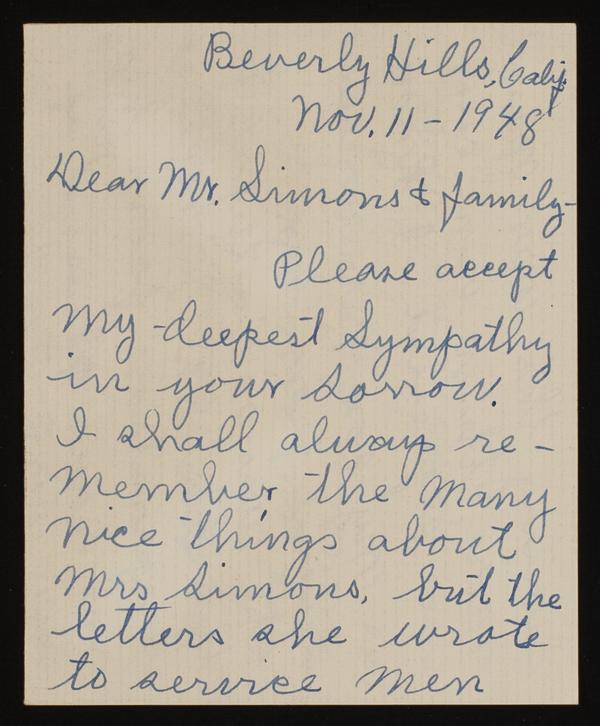 Beverly Hills, Calif.
Nov. 11 - 1948
Dear Mr. Simons & family-
Please accept
My deepest Sympathy
in your sorrow.
I shall always re-
member the many
nice things about
Mrs Simons, but the
letters she wrote
to service men